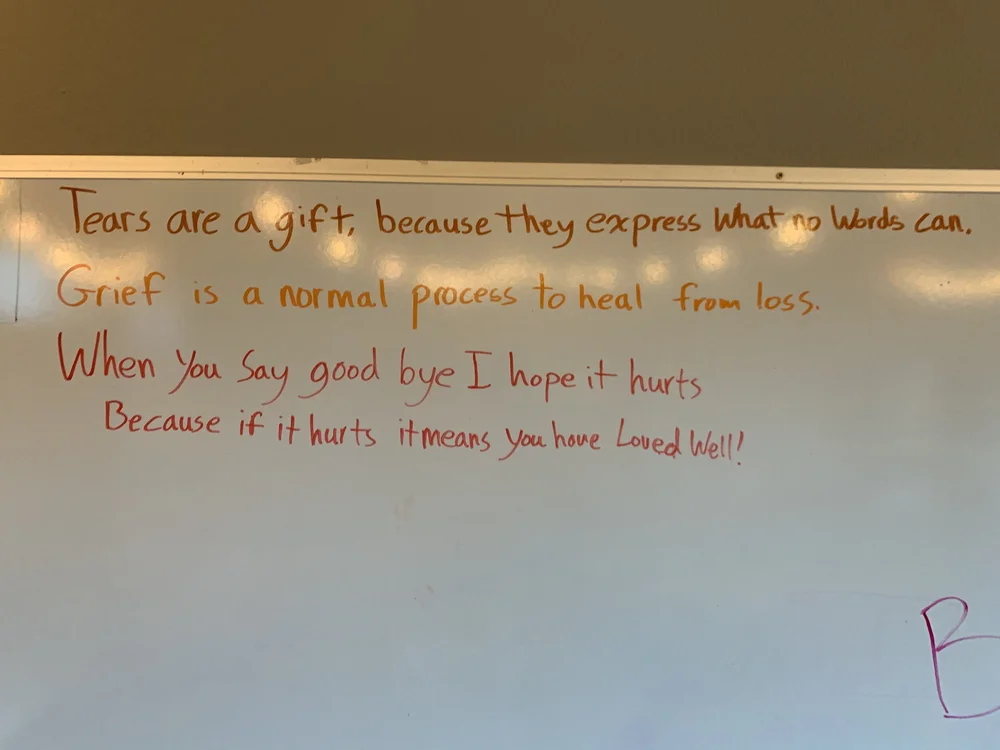 Tears are a gift, because they express what no words can.
Grief is a normal process to heal from loss.
When you say good bye I hope it hurts
Because if it hurts it means you have Loved Well!
B